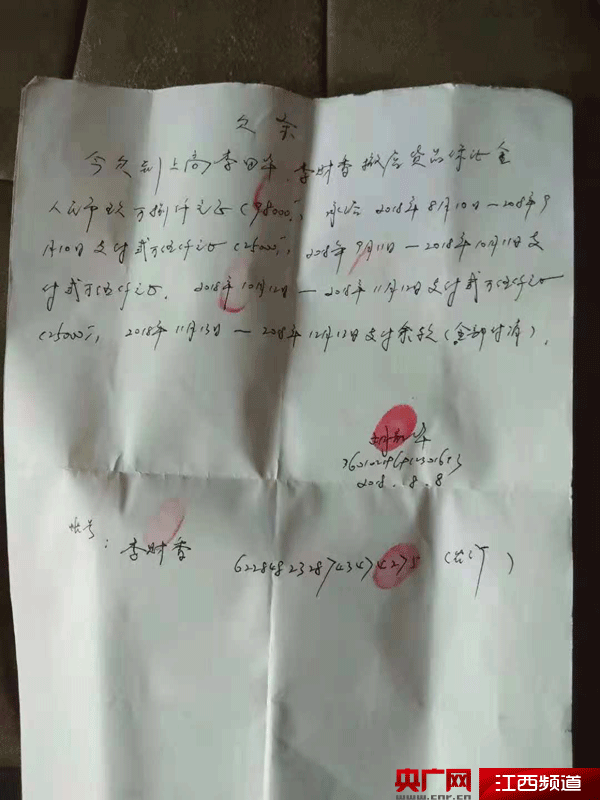 欠条
今欠到上高李田华、李财香搬店货品保证金
人民币玖万捌仟元正(98000元), 2018年8月10日—2018年9
月10日支付贰万伍仟元正(25000元), 2018年9月11日—2018年10月11日支
付贰万伍仟元正. 2018年10月12日—2018年11月12日支付贰万伍仟元正
(25000元), 2018年11月13日—2018年12月12日支付余款(全部付清).
2018.8.8
帐号:
李财香 (农行)
央广网 江西频道
www.cnr.cn